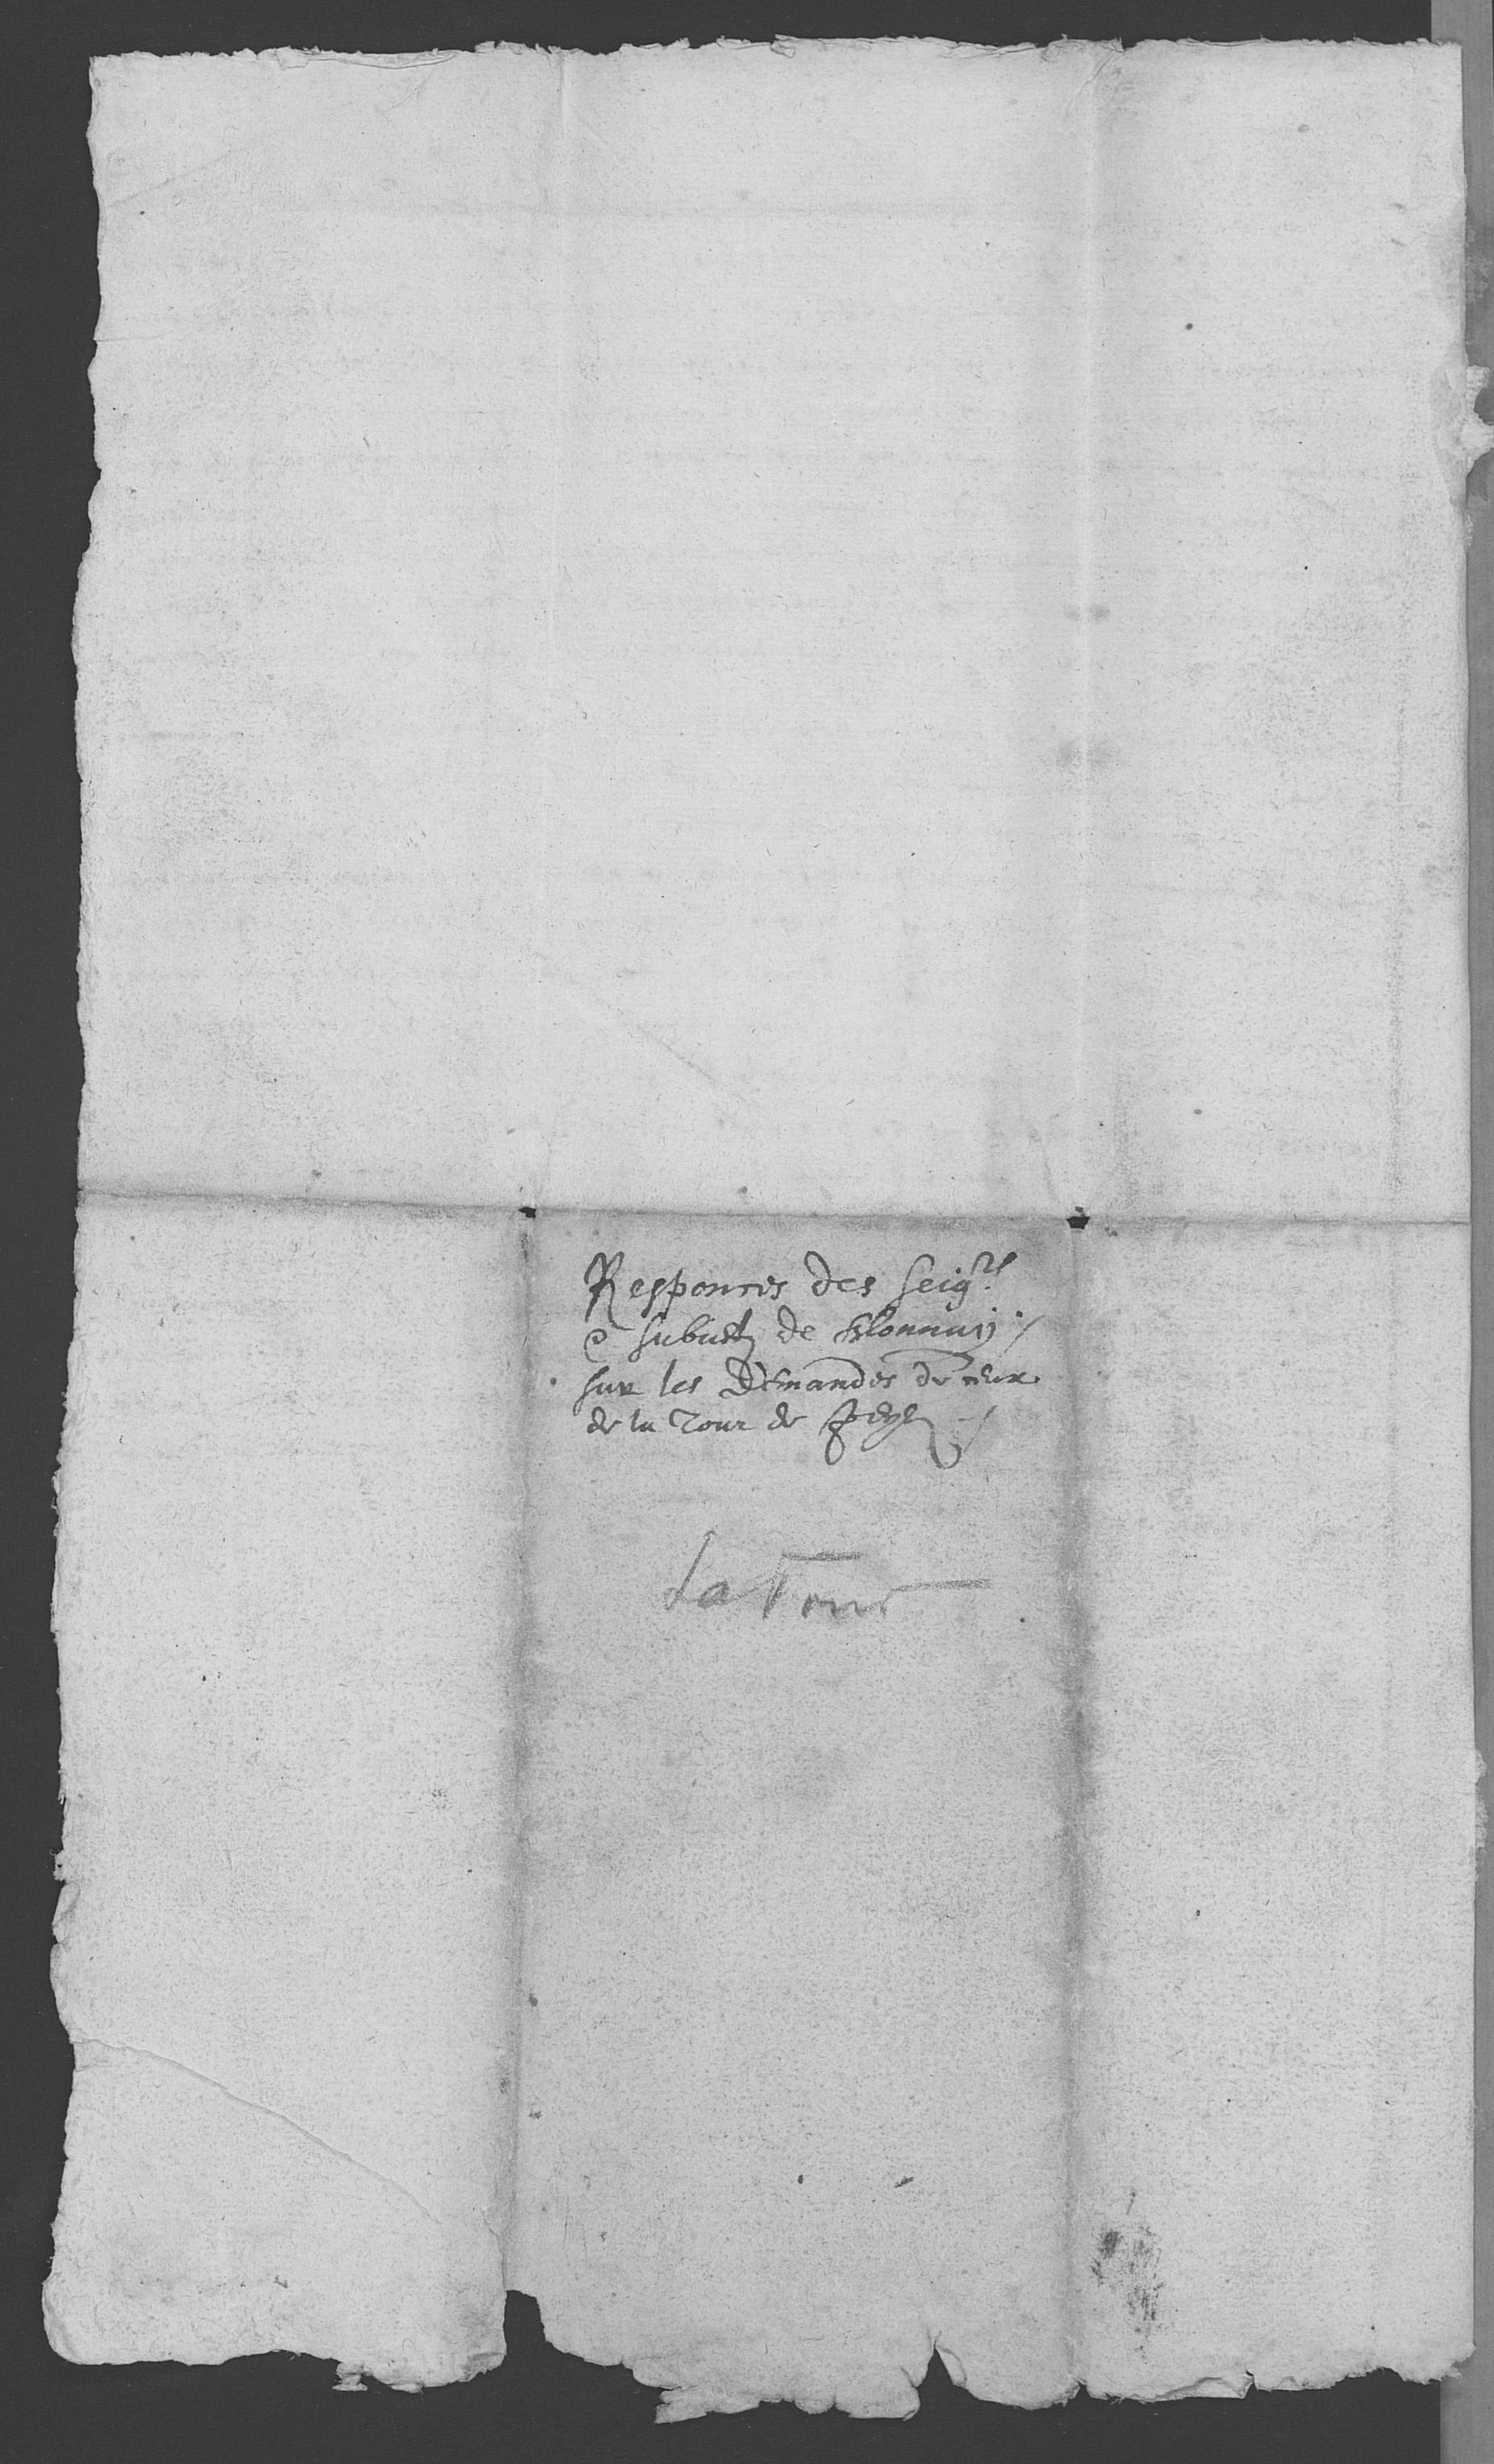 Responces des seigrs
& subiectz de Blonnay
sur les Demandes de ceux
de la Tour de Peyl
La Tour